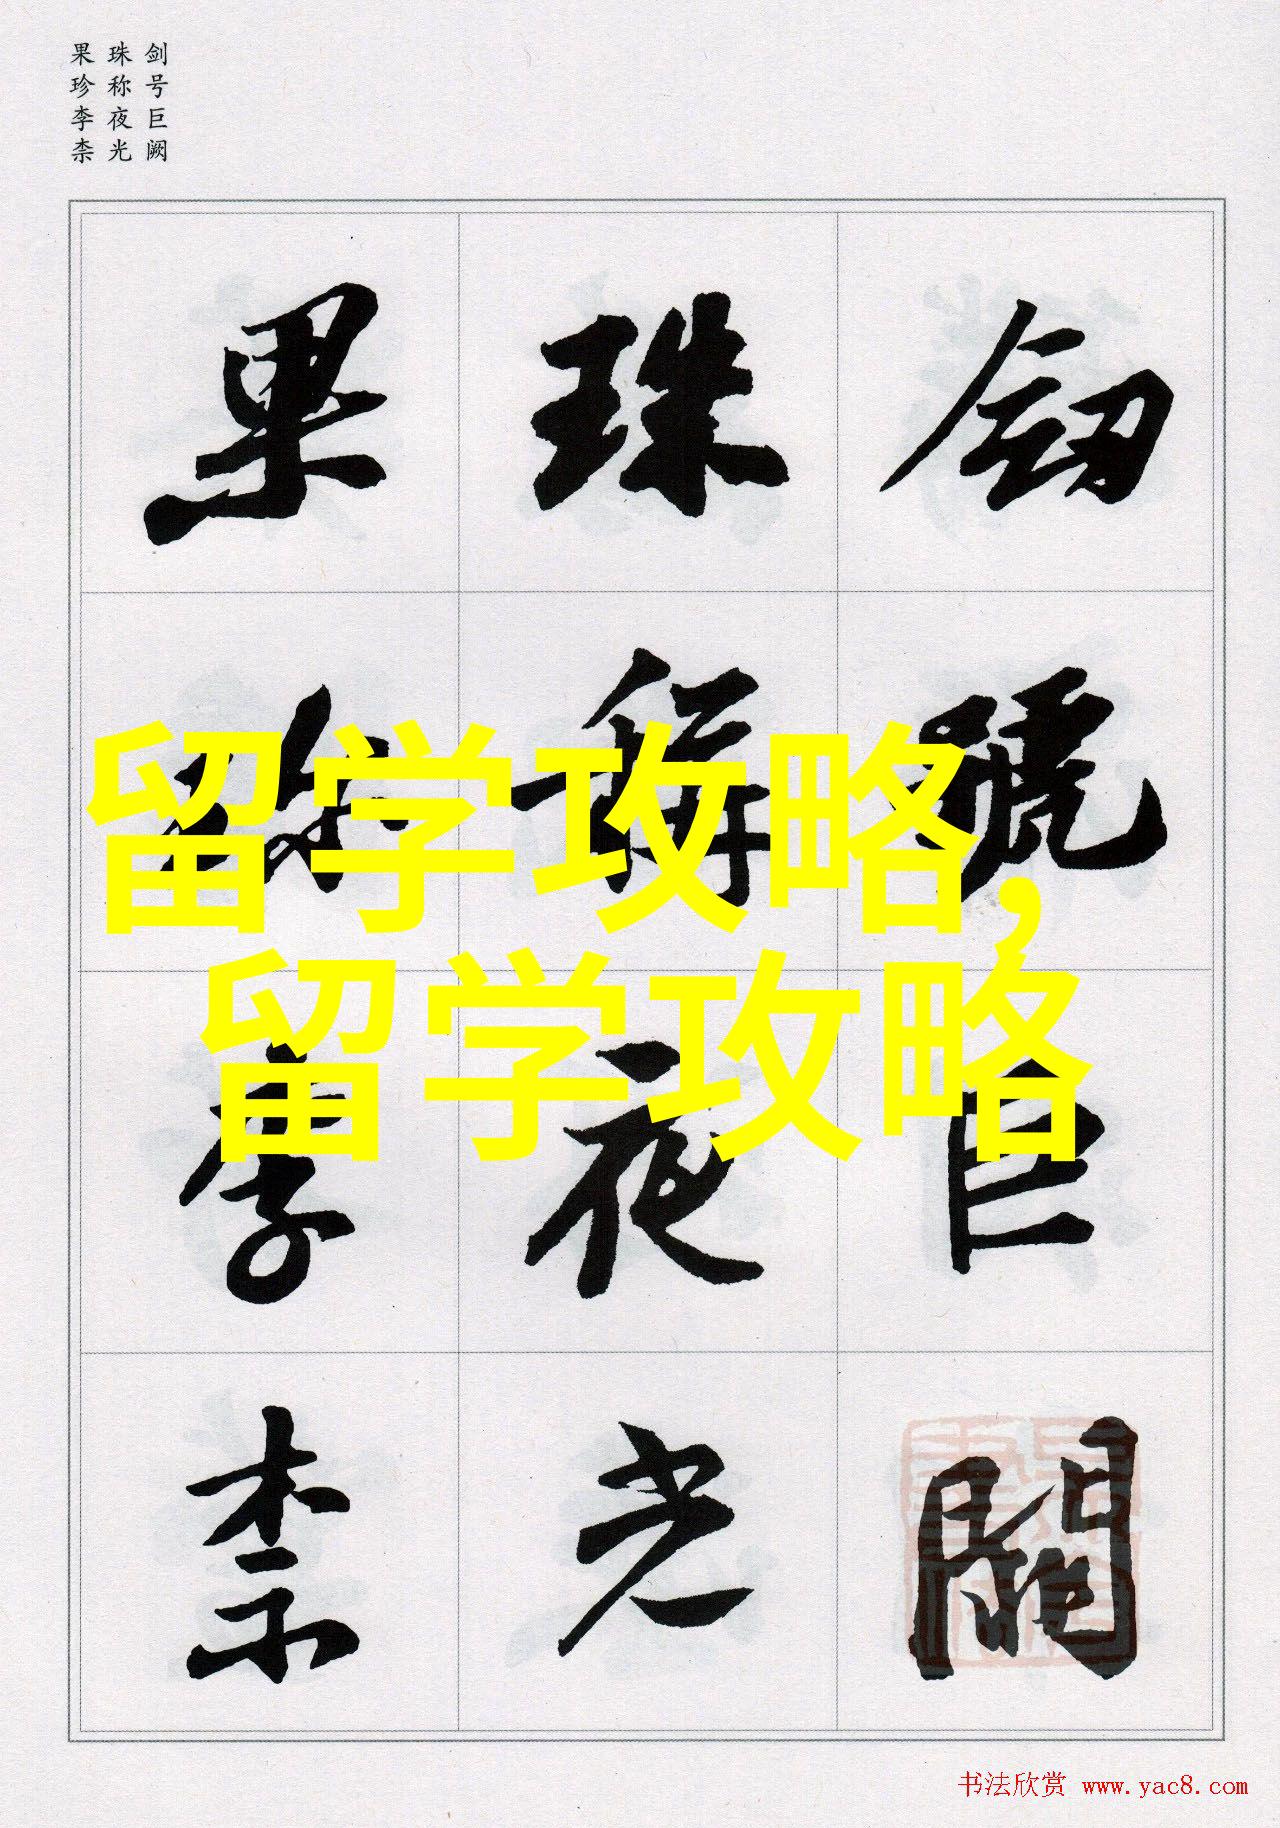 剑号巨阙
珠称夜光
果珍李柰
劍號巨闕
珠稱夜光
果珍李柰
留学攻略,
留学攻略
书法欣赏 www.yac8.com